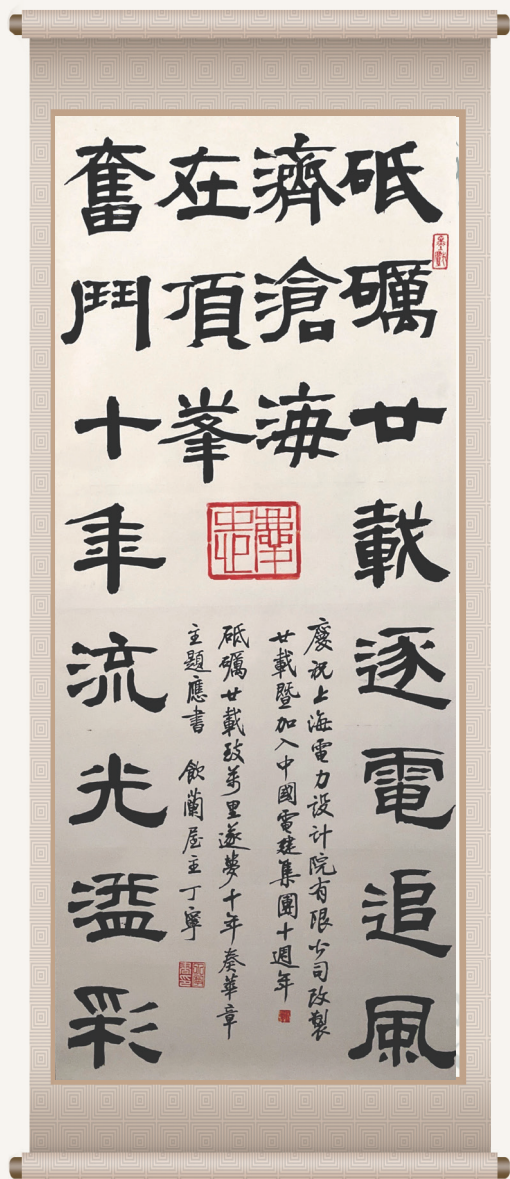 砥礪廿載逐電追風
濟滄海
在頂峯
奮鬥十年流光溢彩
慶祝上海電力设计院有限公司改製
廿載暨加入中國電建集團十週年
砥礪廿載致萬里逐夢十年奏華章
主題應書 飲蘭屋主丁寧